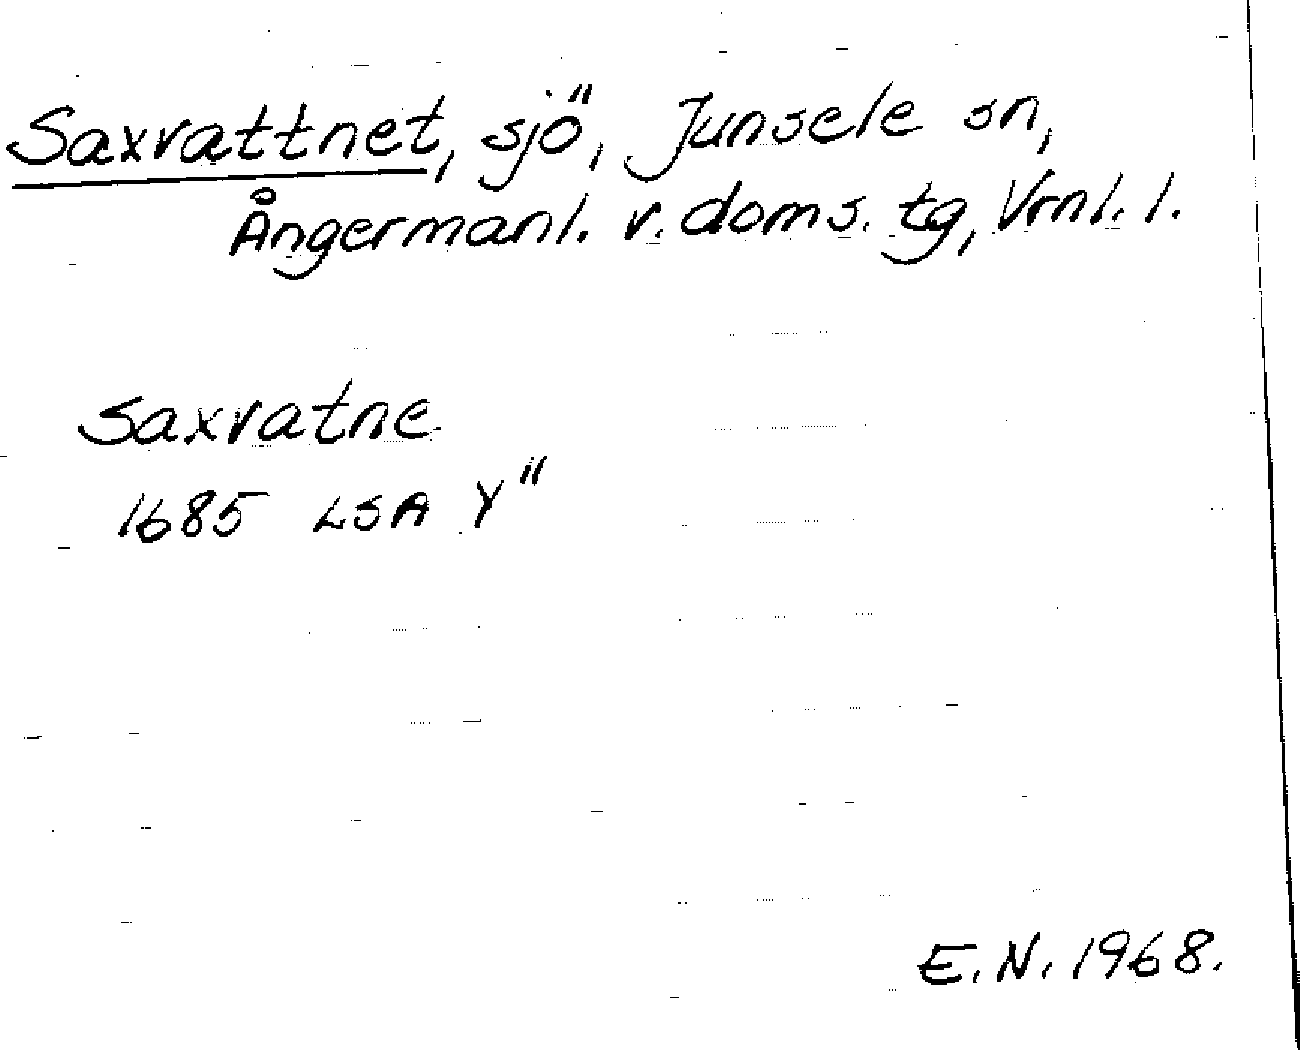 Saxvattnet, sjö, Junsele sn,
Ångermanl. v. doms. tg, Vrnl. l.
Saxvatne
1685 LSA Y"
E.N. 1968.